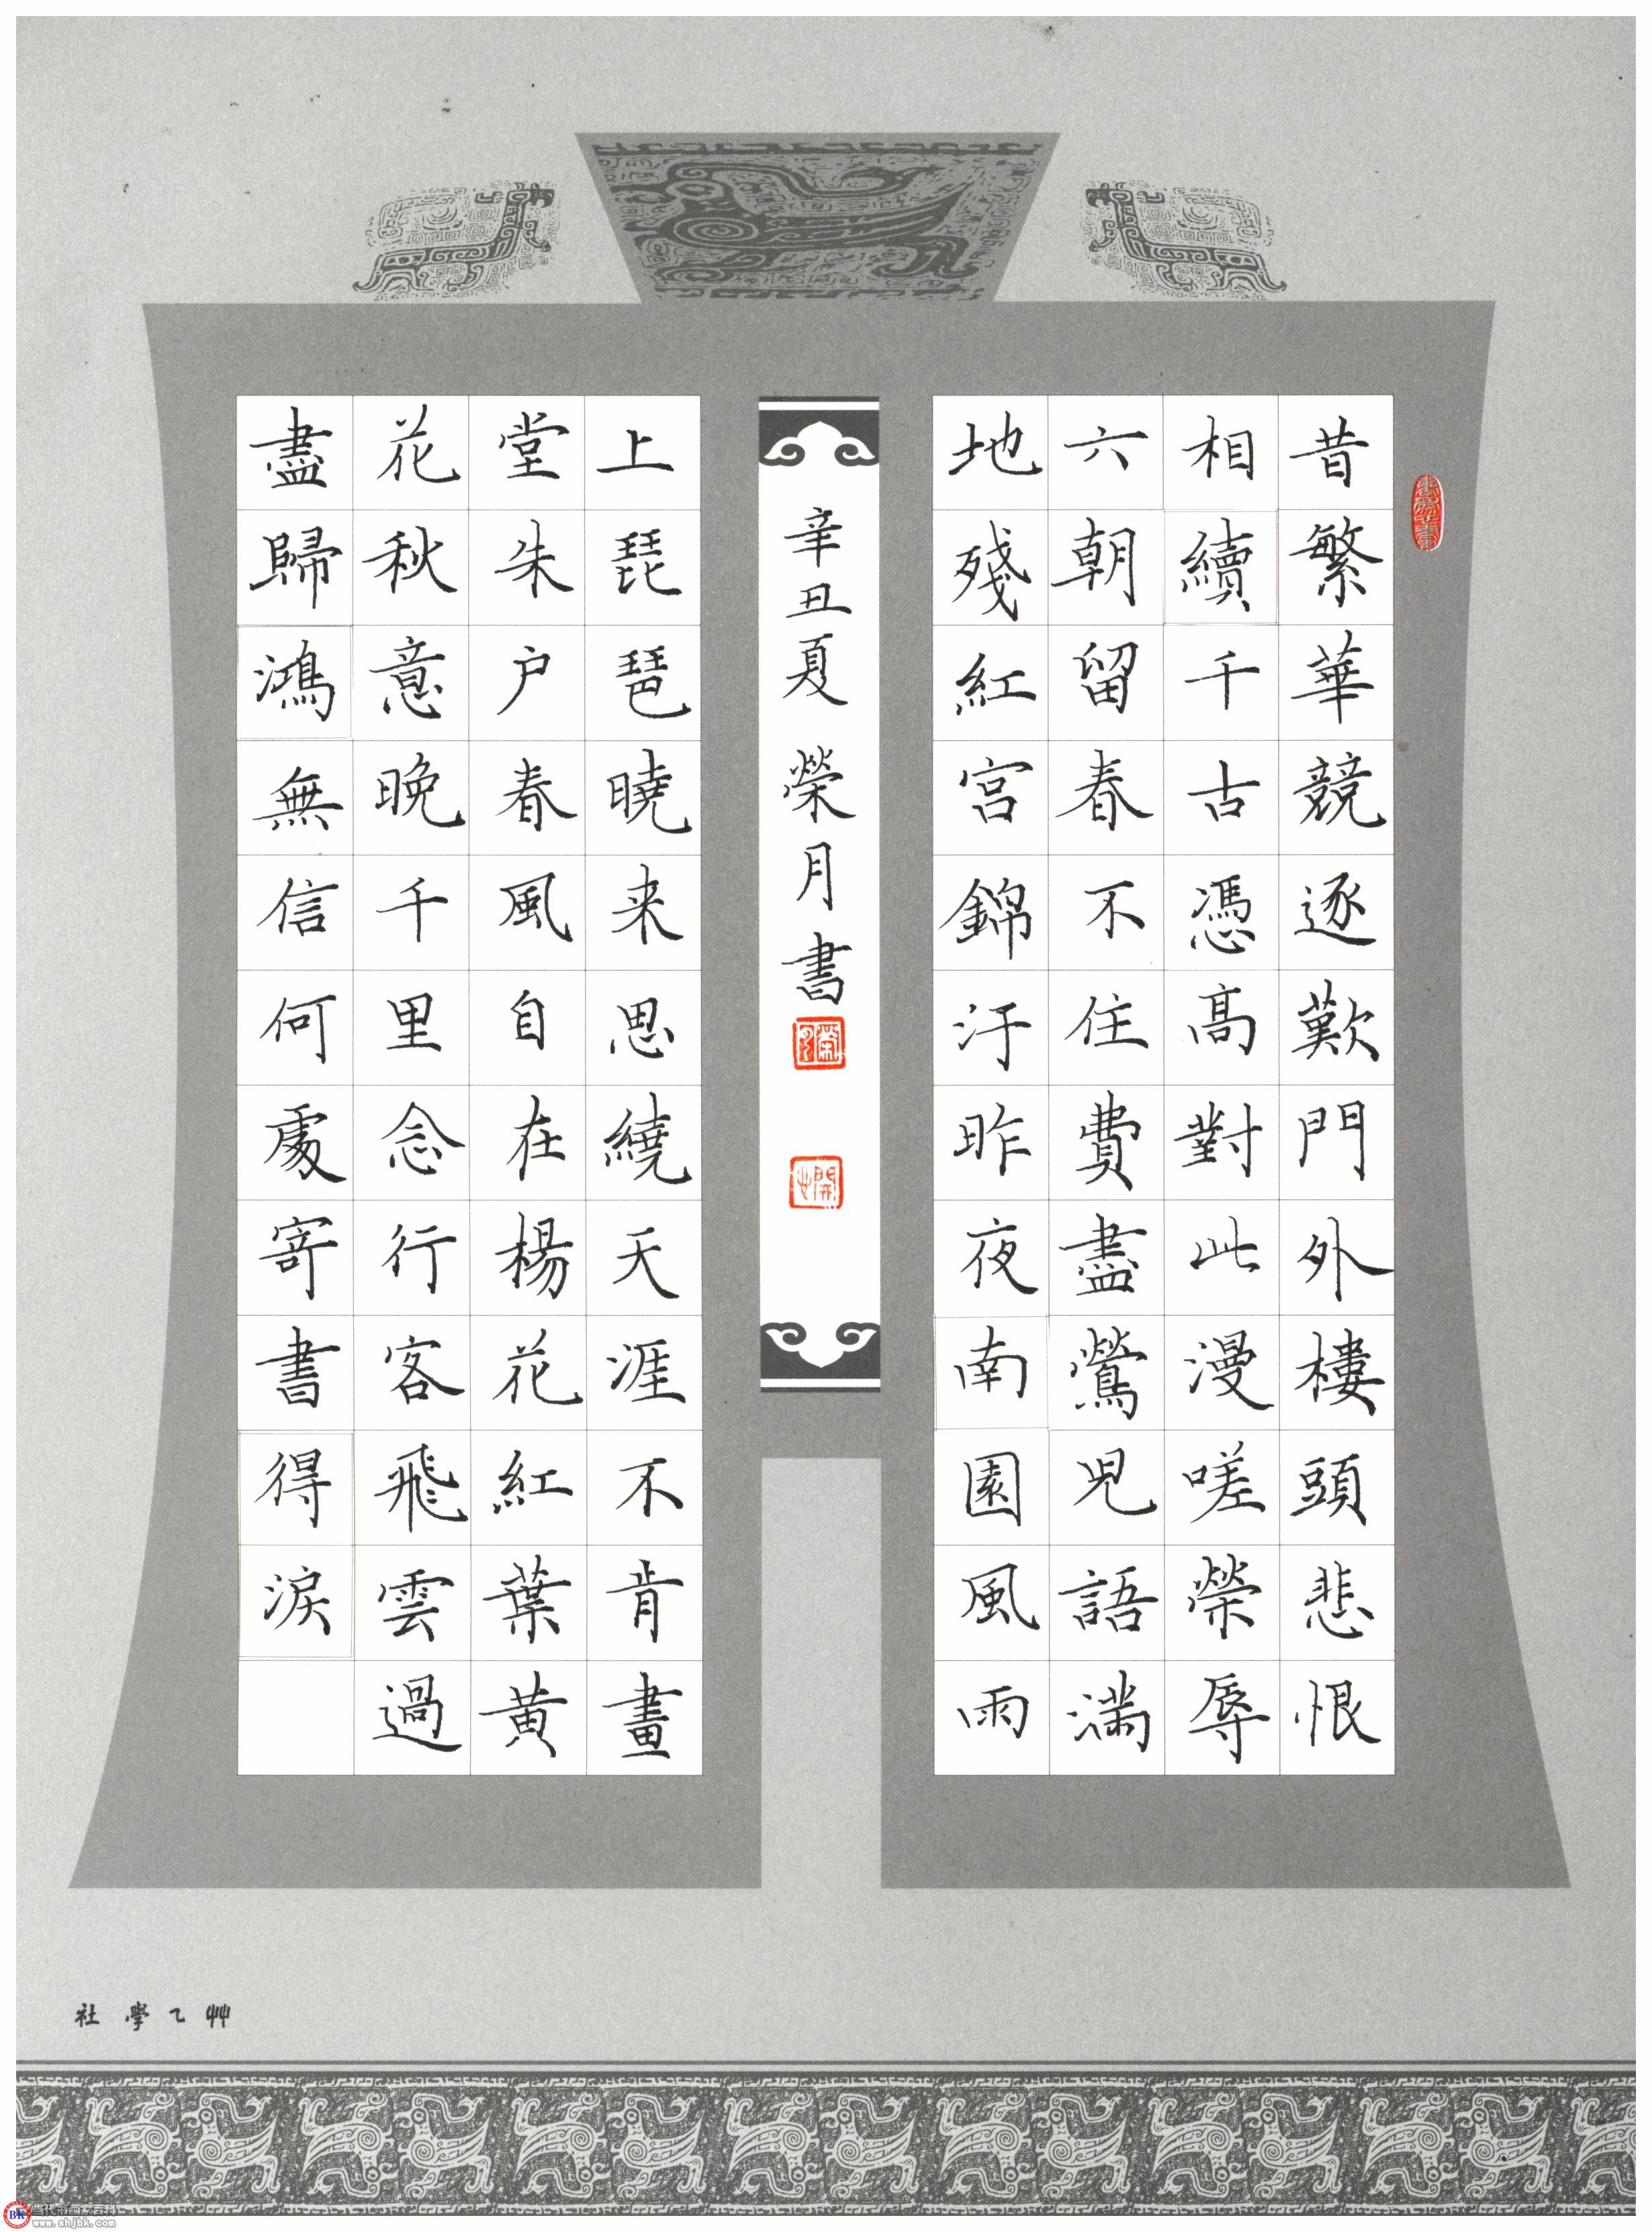 昔繁華競逐歎門外樓頭悲恨
相續千古憑高對此漫嗟榮辱
六朝留春不住費盡鶯兒語滿
地殘紅宮錦汙昨夜南園風雨
上琵琶曉来思繞天涯不肯畫
堂朱户春風自在楊花紅葉黃
花秋意晚千里念行客飛雲過
盡歸鴻無信何處寄書得淚
辛丑夏 榮月書
榮月
艸乙學社
BK
www.shjbk.com